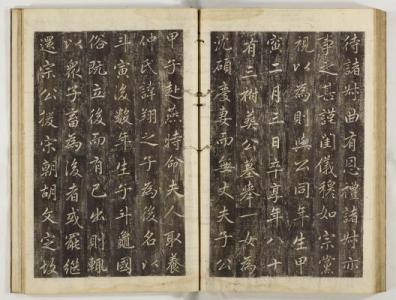 待諸姊曲有恩禮諸姊亦
事之甚謹閨儀穆如宗黨
視以為則與公同年生甲
寅二月三日卒享年八十
有三祔英公墓舉一女為
沈碩慶妻而無丈夫子公
甲子赴燕時命夫人取養
仲氏諱翔之子為後名以
斗寅後數年生子斗龜國
俗既立後而有己出則輒
以眾子畜為後者或罷繼
還宗公援宋朝胡文定故